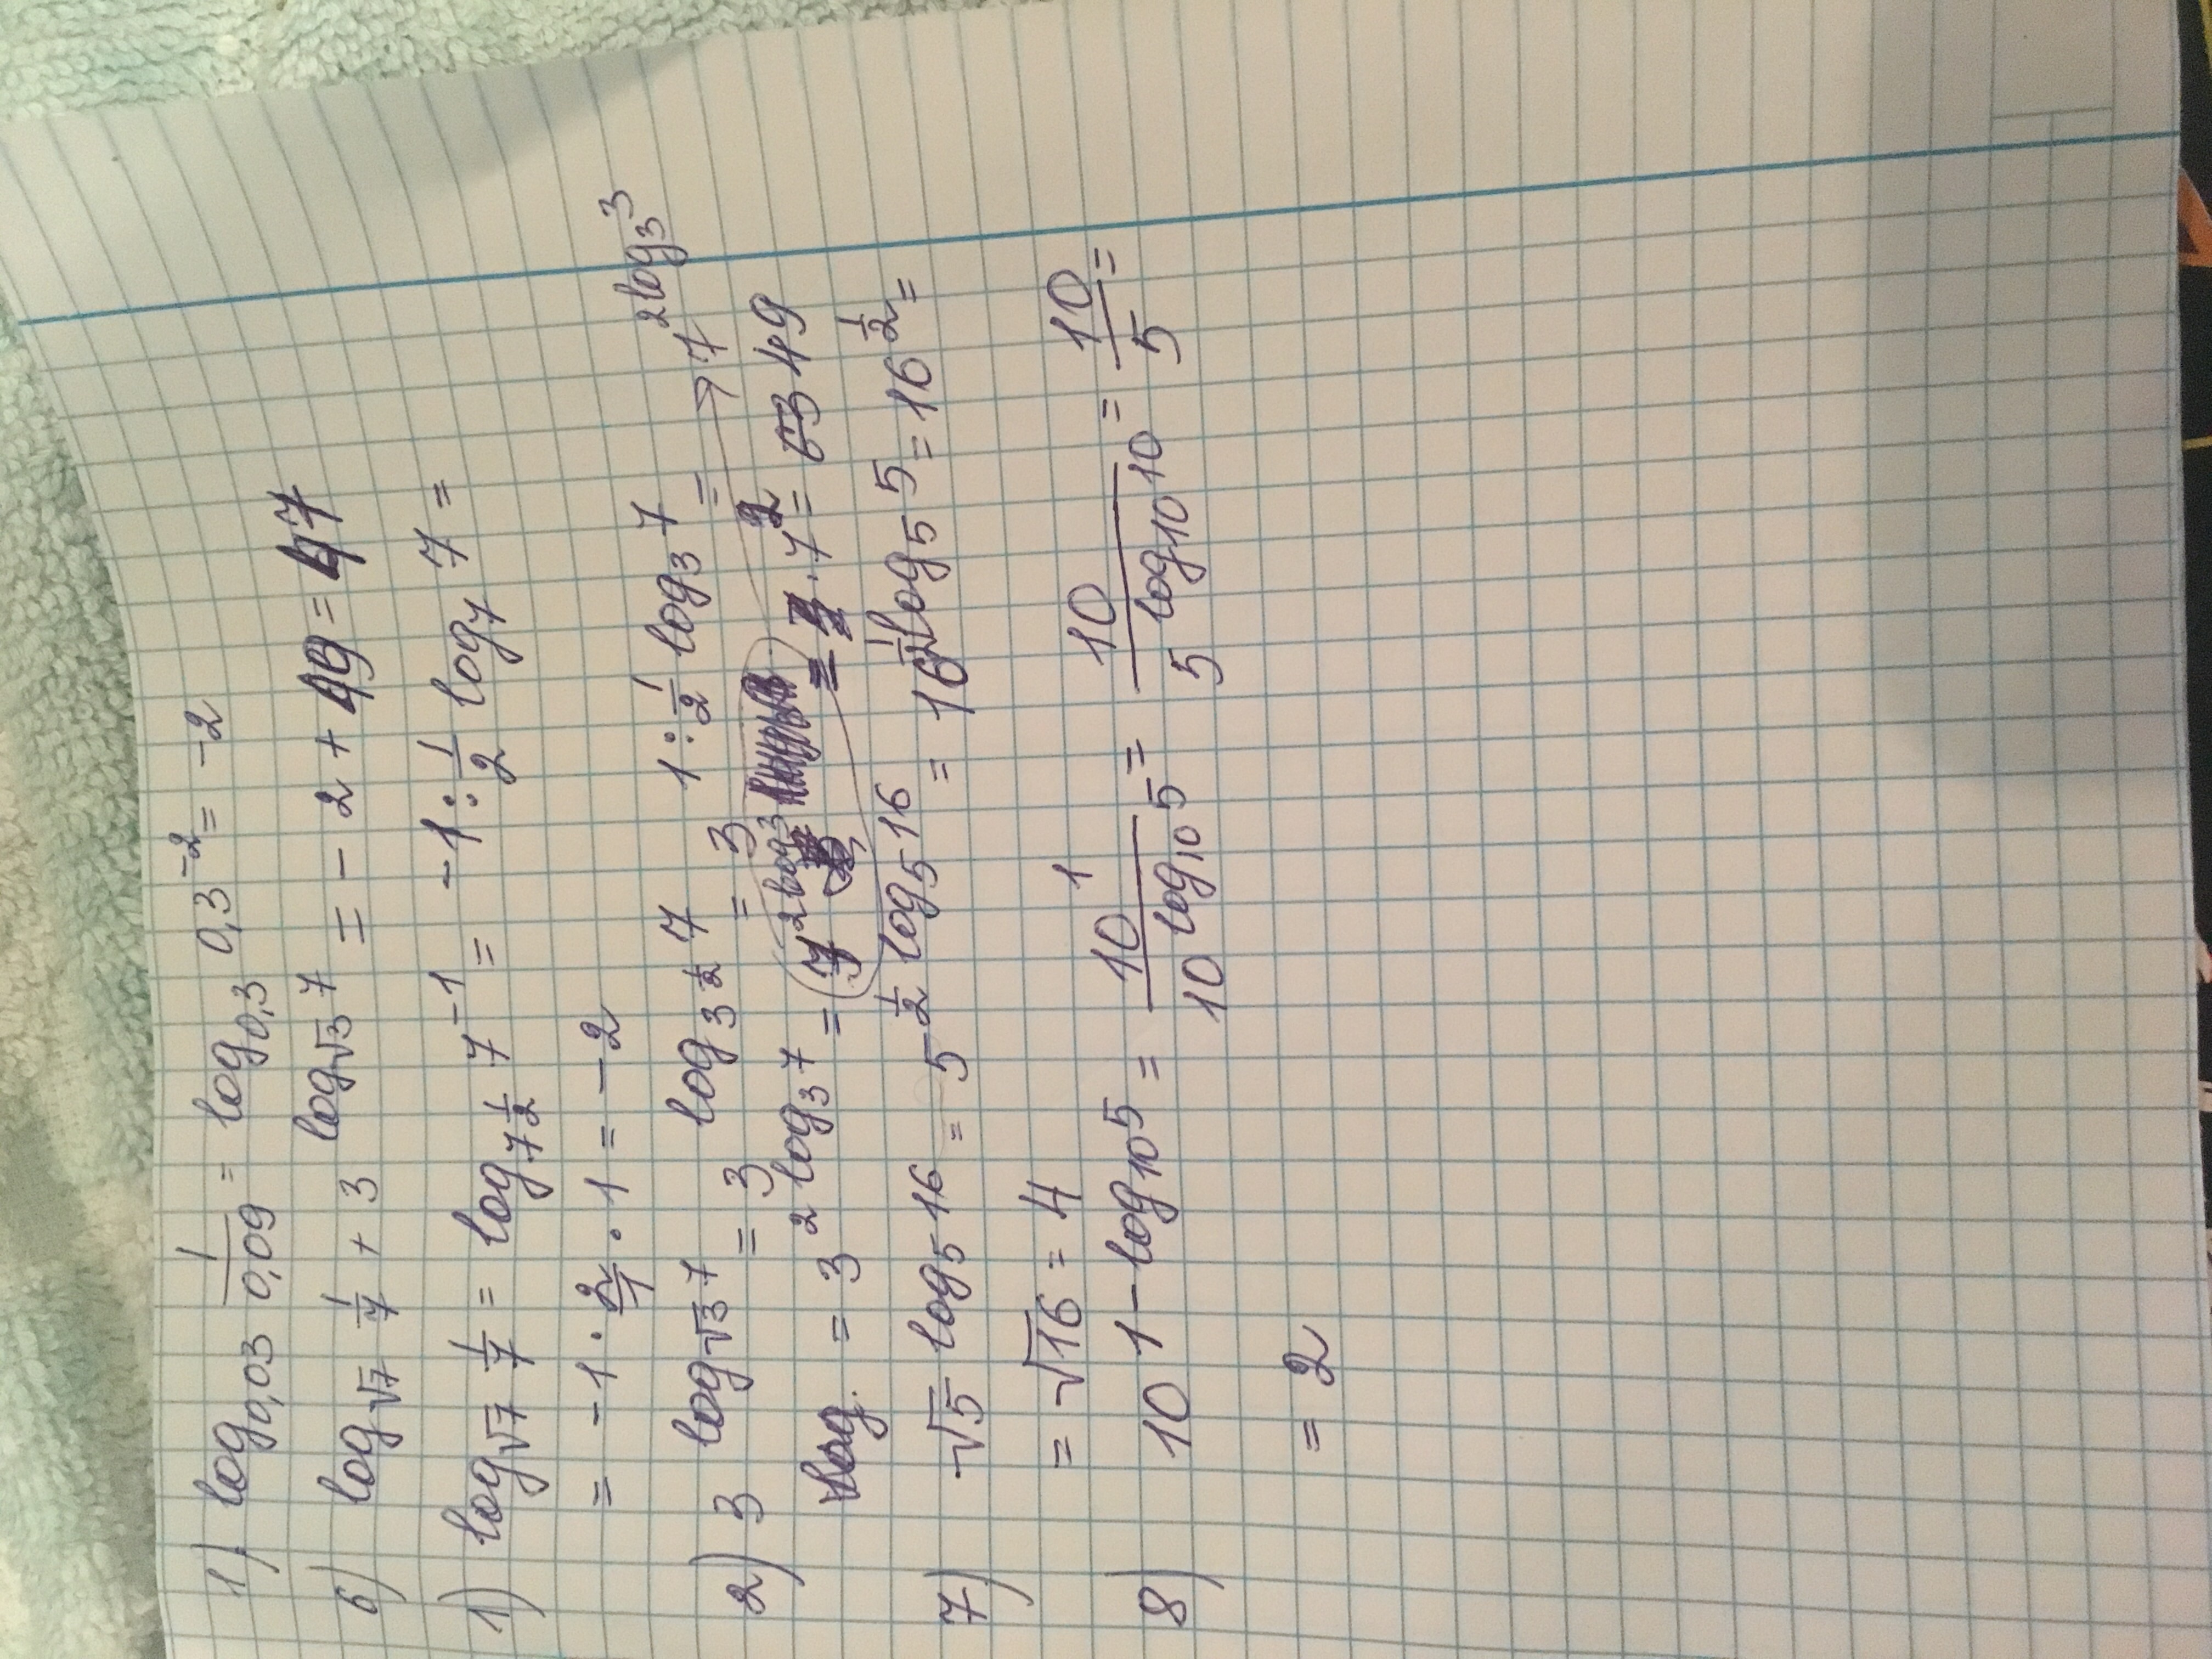 1) log₀,₀₃ 1/0,09 = log₀,₃ 0,3⁻² = -2
6) log_√7 1/7 + 3^(log_√3 7) = -2 + 49 = 47
1) log_√7 1/7 = log_7^(1/2) 7⁻¹ = -1 : 1/2 log₇ 7 =
= -1 · 2/1 · 1 = -2
2) 3^(log_√3 7) = 3^(log_3^(1/2) 7) = 3^(1 : 1/2 log₃ 7) = → 7^(2log₃ 3)
= 3^(2 log₃ 7) = (7^(2log₃ = 7² = 49
7) √5^(log₅ 16) = 5^(1/2 log₅ 16) = 16^(1/2 log₅ 5) = 16^(1/2) =
= √16 = 4
8) 10^(1 - log₁₀ 5) = 10¹/10^(log₁₀ 5) = 10/5^(log₁₀ 10) = 10/5 =
= 2